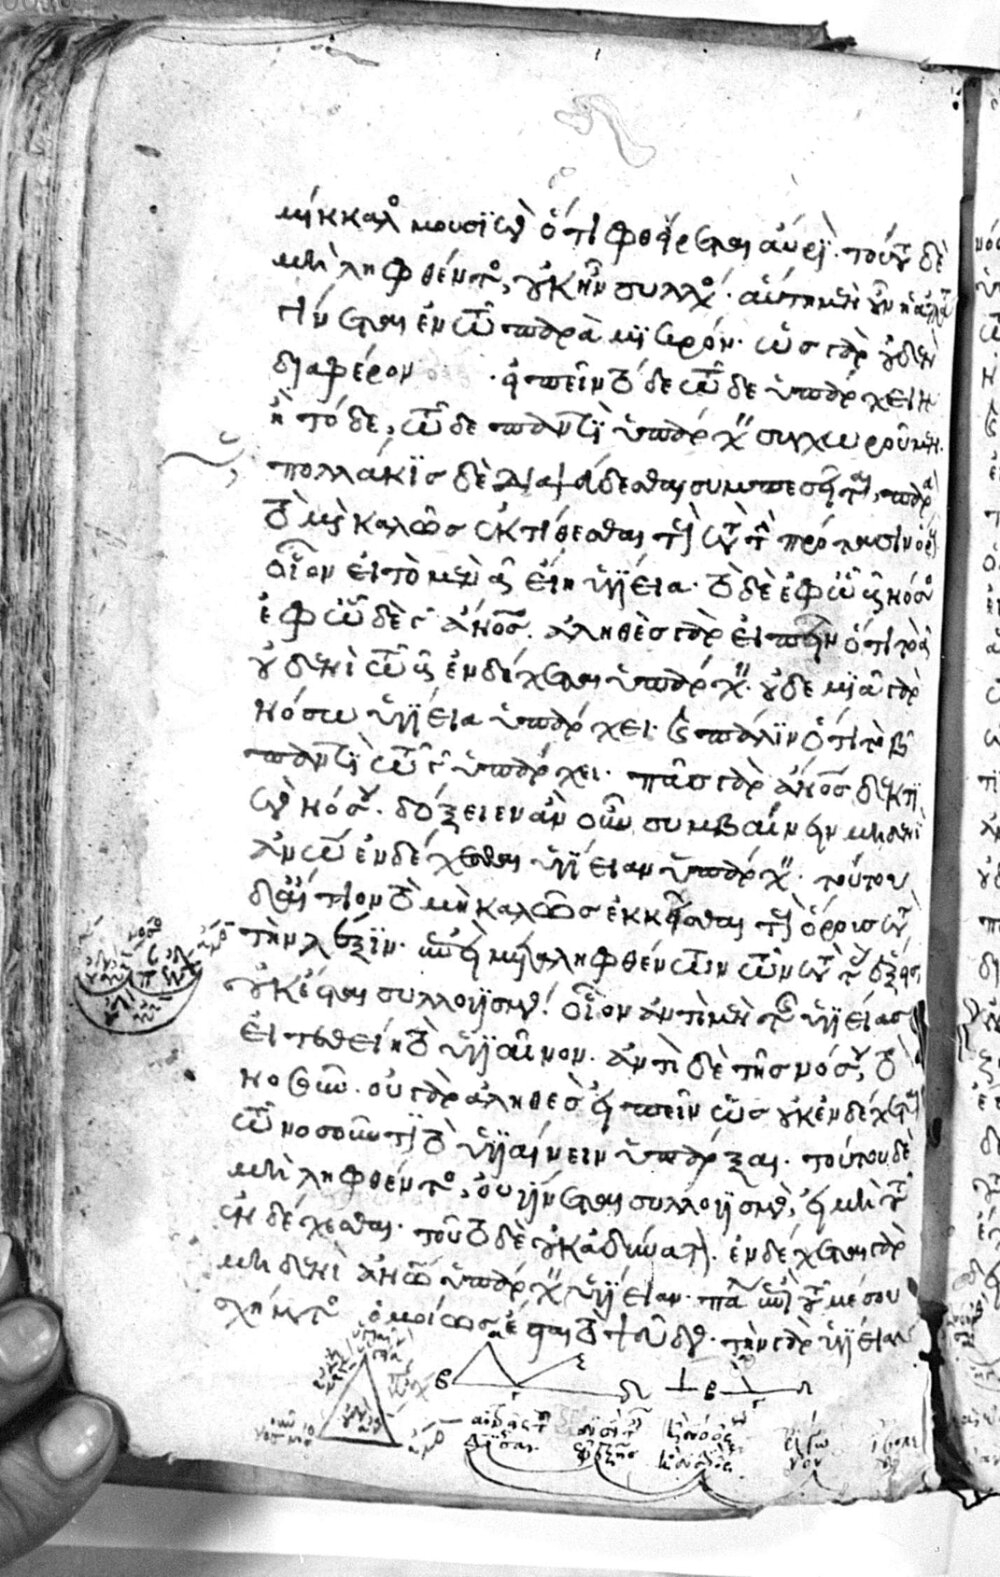 μίκκαλος μουσικὸς ὅτι φθείρεται αὔριον. τούτου δὲ
μὴ ληφθέντος, οὐκ ἦν συλλογισμός. αὕτη μὲν οὖν ἡ ἀπάτη
γίνεται ἐν τῶ παρὰ μικρόν. ὡς γὰρ οὐδὲν
διαφέρον εἰπεῖν τόδε τῶδε ὑπάρχειν
ἢ τόδε, τῶδε παντὶ ὑπάρχειν συγχωροῦμεν.
πολλάκις δὲ διαψεύδεσθαι συμπεσεῖται, παρὰ
τὸ μὴ καλῶς ἐκτίθεσθαι τοὺς κατὰ τὴν πρότασιν ὅρους
οἷον εἰ τὸ μὲν α εἴη ὑγίεια. τὸ δὲ ἐφ ὧ β νόσος
ἐφ ὧ δὲ γ ἄνθρωπος. ἀληθὲς γὰρ εἰπεῖν ὅτι τὸ α
οὐδενὶ τῶ β ἐνδέχεται ὑπάρχειν. οὐδεμιᾶ γὰρ
νόσω ὑγίεια ὑπάρχει. καὶ πάλιν ὅτι τὸ β
παντὶ τῶ γ ὑπάρχει. πᾶς γὰρ ἄνθρωπος δεκτι
κὸς νόσου. δόξειεν ἂν οὖν συμβαίνειν μηδενὶ
ἀνθρώπω ἐνδέχεσθαι ὑγίειαν ὑπάρχειν. τούτου
δ' αἴτιον τὸ μὴ καλῶς ἐκκεῖσθαι τοὺς ὅρους κατὰ
τὴν λέξιν. ἐπεὶ μεταληφθέντων τῶν κατὰ τὰς ἕξεις,
οὐκ ἔσται συλλογισμός. οἷον ἀντὶ μὲν τῆς ὑγιείας
εἰ τεθείη τὸ ὑγιαῖνον. ἀντὶ δὲ τῆς νόσου, τὸ
νοσοῦν. οὐ γὰρ ἀληθὲς εἰπεῖν ὡς οὐκ ἐνδέχεται
τῶ νοσοῦντι τὸ ὑγιαίνειν ὑπάρξαι. τούτου δὲ
μὴ ληφθέντος, οὐ γίνεται συλλογισμός, εἰ μὴ τοῦ
ἐνδέχεσθαι. τοῦτο δὲ οὐκ ἀδύνατον. ἐνδέχεται γὰρ
μηδενὶ ἀνθρώπω ὑπάρχειν ὑγίειαν. πάλιν ἐπὶ τοῦ μέσου
σχήματος ὁμοίως ἔσται τὸ ψεῦδος. τὴν γὰρ ὑγίειαν